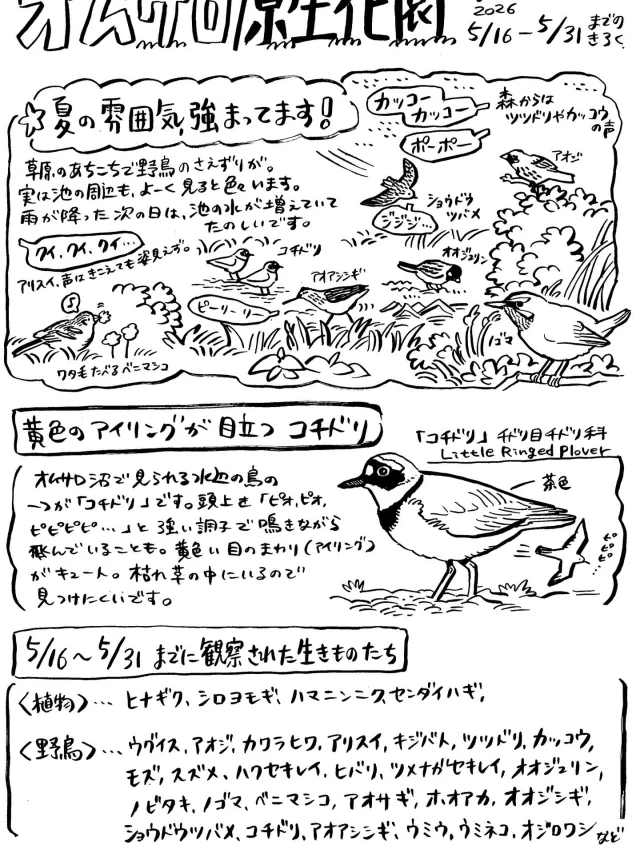 オムサロ原生花園
2026
5/16-5/31 までの
きろく
☆夏の雰囲気、強まってます!
草原のあちこちで野鳥のさえずりが。
実は池の周辺も、よーく見ると色々います。
雨が降った次の日は、池の水が増えていて
たのしいです。
クイ、クイ、クイ…
アリスイ、声はきこえても姿見えず。
カッコー
カッコー
ポーポー
森からは
ツツドリやカッコウ
の声
アオジ
ショウドウ
ツバメ
ジジジ…
コチドリ
アオアシシギ
オオジュリン
ピーリーリー
ノゴマ
ワタ毛たべるベニマシコ
黄色のアイリングが目立つ コチドリ
「コチドリ」チドリ目チドリ科
Little Ringed Plover
オムサロ沼で見られる水辺の鳥の
一つが「コチドリ」です。頭上を「ピオ,ピオ,
ピピピピ…」と強い調子で鳴きながら
飛んでいることも。黄色い目のまわり(アイリング)
がキュート。枯れ草の中にいるので
見つけにくいです。
茶色
ピピピ…
5/16~5/31 までに観察された生きものたち
〈植物〉… ヒナギク、シロヨモギ、ハマニンニク、センダイハギ、
〈野鳥〉… ウグイス、アオジ、カワラヒワ、アリスイ、キジバト、ツツドリ、カッコウ、
モズ、スズメ、ハクセキレイ、ヒバリ、ツメナガセキレイ、オオジュリン、
ノビタキ、ノゴマ、ベニマシコ、アオサギ、ホオアカ、オオジシギ、
ショウドウツバメ、コチドリ、アオアシシギ、ウミウ、ウミネコ、オジロワシ など